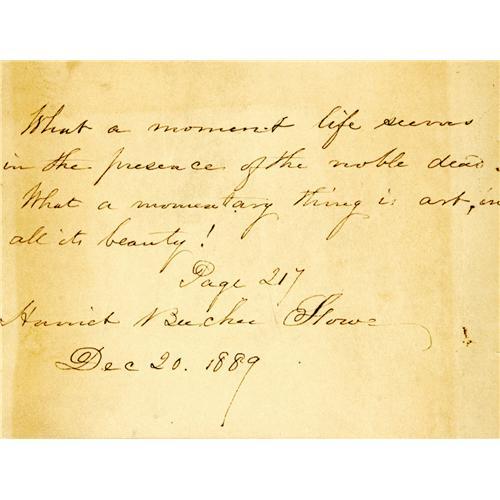 What a moment life seems
in the presence of the noble dead.
What a momentary thing is art, in
all its beauty!
Page 217
Harriet Beecher Stowe
Dec 20. 1889